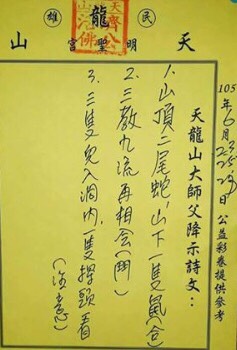 民雄
天龍山
明聖宮
天龍山大師父降示詩文：
105年6月23.25.29日公益彩卷提供參考
1.山頂二尾蛇,山下一隻鼠(合)
2.三教九流再相會(鬥)
3.三隻兔入洞內,一隻探頭看
(注意)